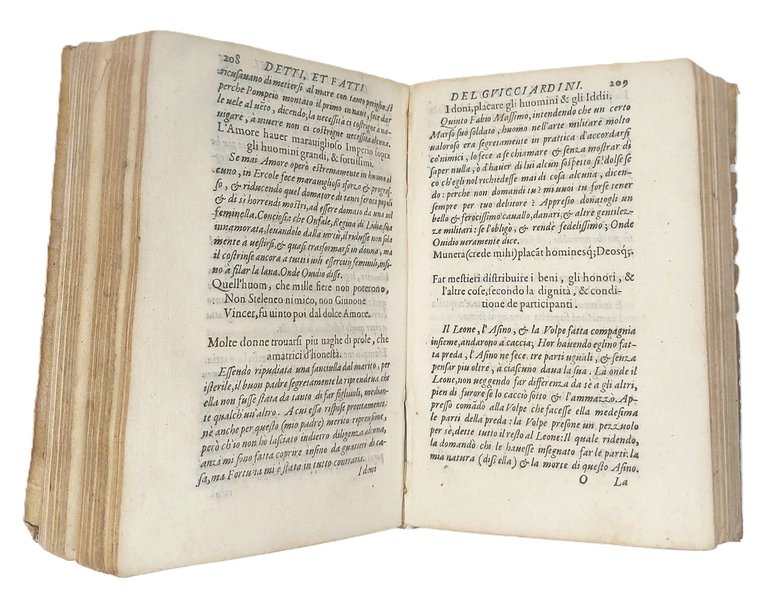 208 DETTI, ET FATTI
ricusauano di mettersi al mare con tanto periglio. Il
perche Pompeio montato il primo in naue, fece dar
le uele al uẽto, dicendo, la necessità ci costrigne a na-
uigare, à uiuere non ci costrigne necessità alcuna.
L'Amore hauer marauiglioso Imperio sopra
gli huomini grandi, & fortissimi.
Se mai Amore operò estremamente in huomo al
cuno, in Ercole fece marauiglioso sforzo & progres-
so, & riducendo quel domatore di tanti feroci popoli
& di sì horrendi mostri, ad essere domato da una uil
feminella. Conciosia che Onfale, Regina di Lidia, sua
innamorata, leuandolo dalla uirtù, il ridusse non sola
mente à uestirsi, & quasi trasformarsi in donna, ma
il costrinse ancora a tutti i uoli essercitij feminili, insi
no à filar la lana. Onde Ouidio disse.
Quell'huom, che mille fiere non poterono,
Non Steleneo nimico, non Giunone
Vincer, fu uinto poi dal dolce Amore.
Molte donne trouarsi piu uaghe di prole, che
amatrici d'honestà.
Essendo ripudiata una fanciulla dal marito, per
isterile, il buon padre segretamente la riprendeua che
ella non fusse stata da tanto di far figliuoli, mediante
qualch'un'altro. A cui essa rispose prontamente:
nè anche per questo (mio padre) merito riprensione,
però ch'io non ho lasciato indietro diligenza alcuna,
anzi mi sono fatta coprire infino da guatteri di ca-
sa, ma Fortuna mi è stata in tutto contraria.
I doni
DEL GVICCIARDINI. 209
I doni, placare gli huomini & gli Iddii.
Quinto Fabio Massimo, intendendo che un certo
Marso suo soldato, huomo nell'arte militare molto
ualoroso era segretamente in prattica d'accordarsi
co'nimici, lo fece a se chiamare & senza mostrar di
saper nulla, ò d'hauer di lui alcun sospetto, si dolse se
co ch'egli nol richiedesse mai di cosa alcuna, dicen-
do: perche non domandi tu? mi uuoi tu forse tener
sempre per tuo debitore? Appresso donatogli un
bello & ferocissimo cauallo, danari, & altre gentilez-
ze militari: se l'obligò, & rende fedelissimo; Onde
Ouidio ueramente dice.
Munera (crede mihi) placãt hominesq́; Deosq́;.
Far mestieri distribuire i beni, gli honori, &
l'altre cose, secondo la dignità, & condi-
tione de participanti.
Il Leone, l'Asino, & la Volpe fatta compagnia
insieme, andarono a caccia; Hor hauendo eglino fatta
preda, l'Asino ne fece tre parti uguali, & senza
pensar piu oltre, à ciascuno daua la sua. Là onde il
Leone, non ueggendo far differenza da sè à gli altri,
pien di furore sè lo cacciò sotto & l'ammazzò. Ap-
presso comãdò alla Volpe che facesse ella medesima
le parti della preda: la Volpe presone un pezzuolo
per sè, dette tutto il resto al Leone: Il quale ridendo,
la domandò chi le hauesse insegnato far le parti: la
mia natura (diss'ella) & la morte di questo Asino.
O La